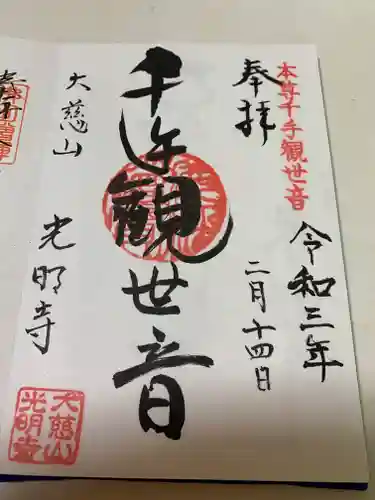 本尊千手観世音
奉拝
令和三年
二月十四日
千手觀世音
大慈山
光明寺
大慈山
光明寺